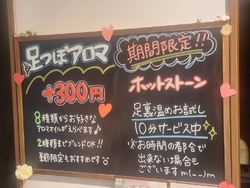 足つぼアロマ
+300円
8種類からお好きな
アロマオイルがえらべます♪
2種類までブレンドOK!!
季節限定もおすすめです
期間限定!!
ホットストーン
足裏温めお試し
10分サービス中
※お時間の都合で
出来ない場合も
ございますm(__)m